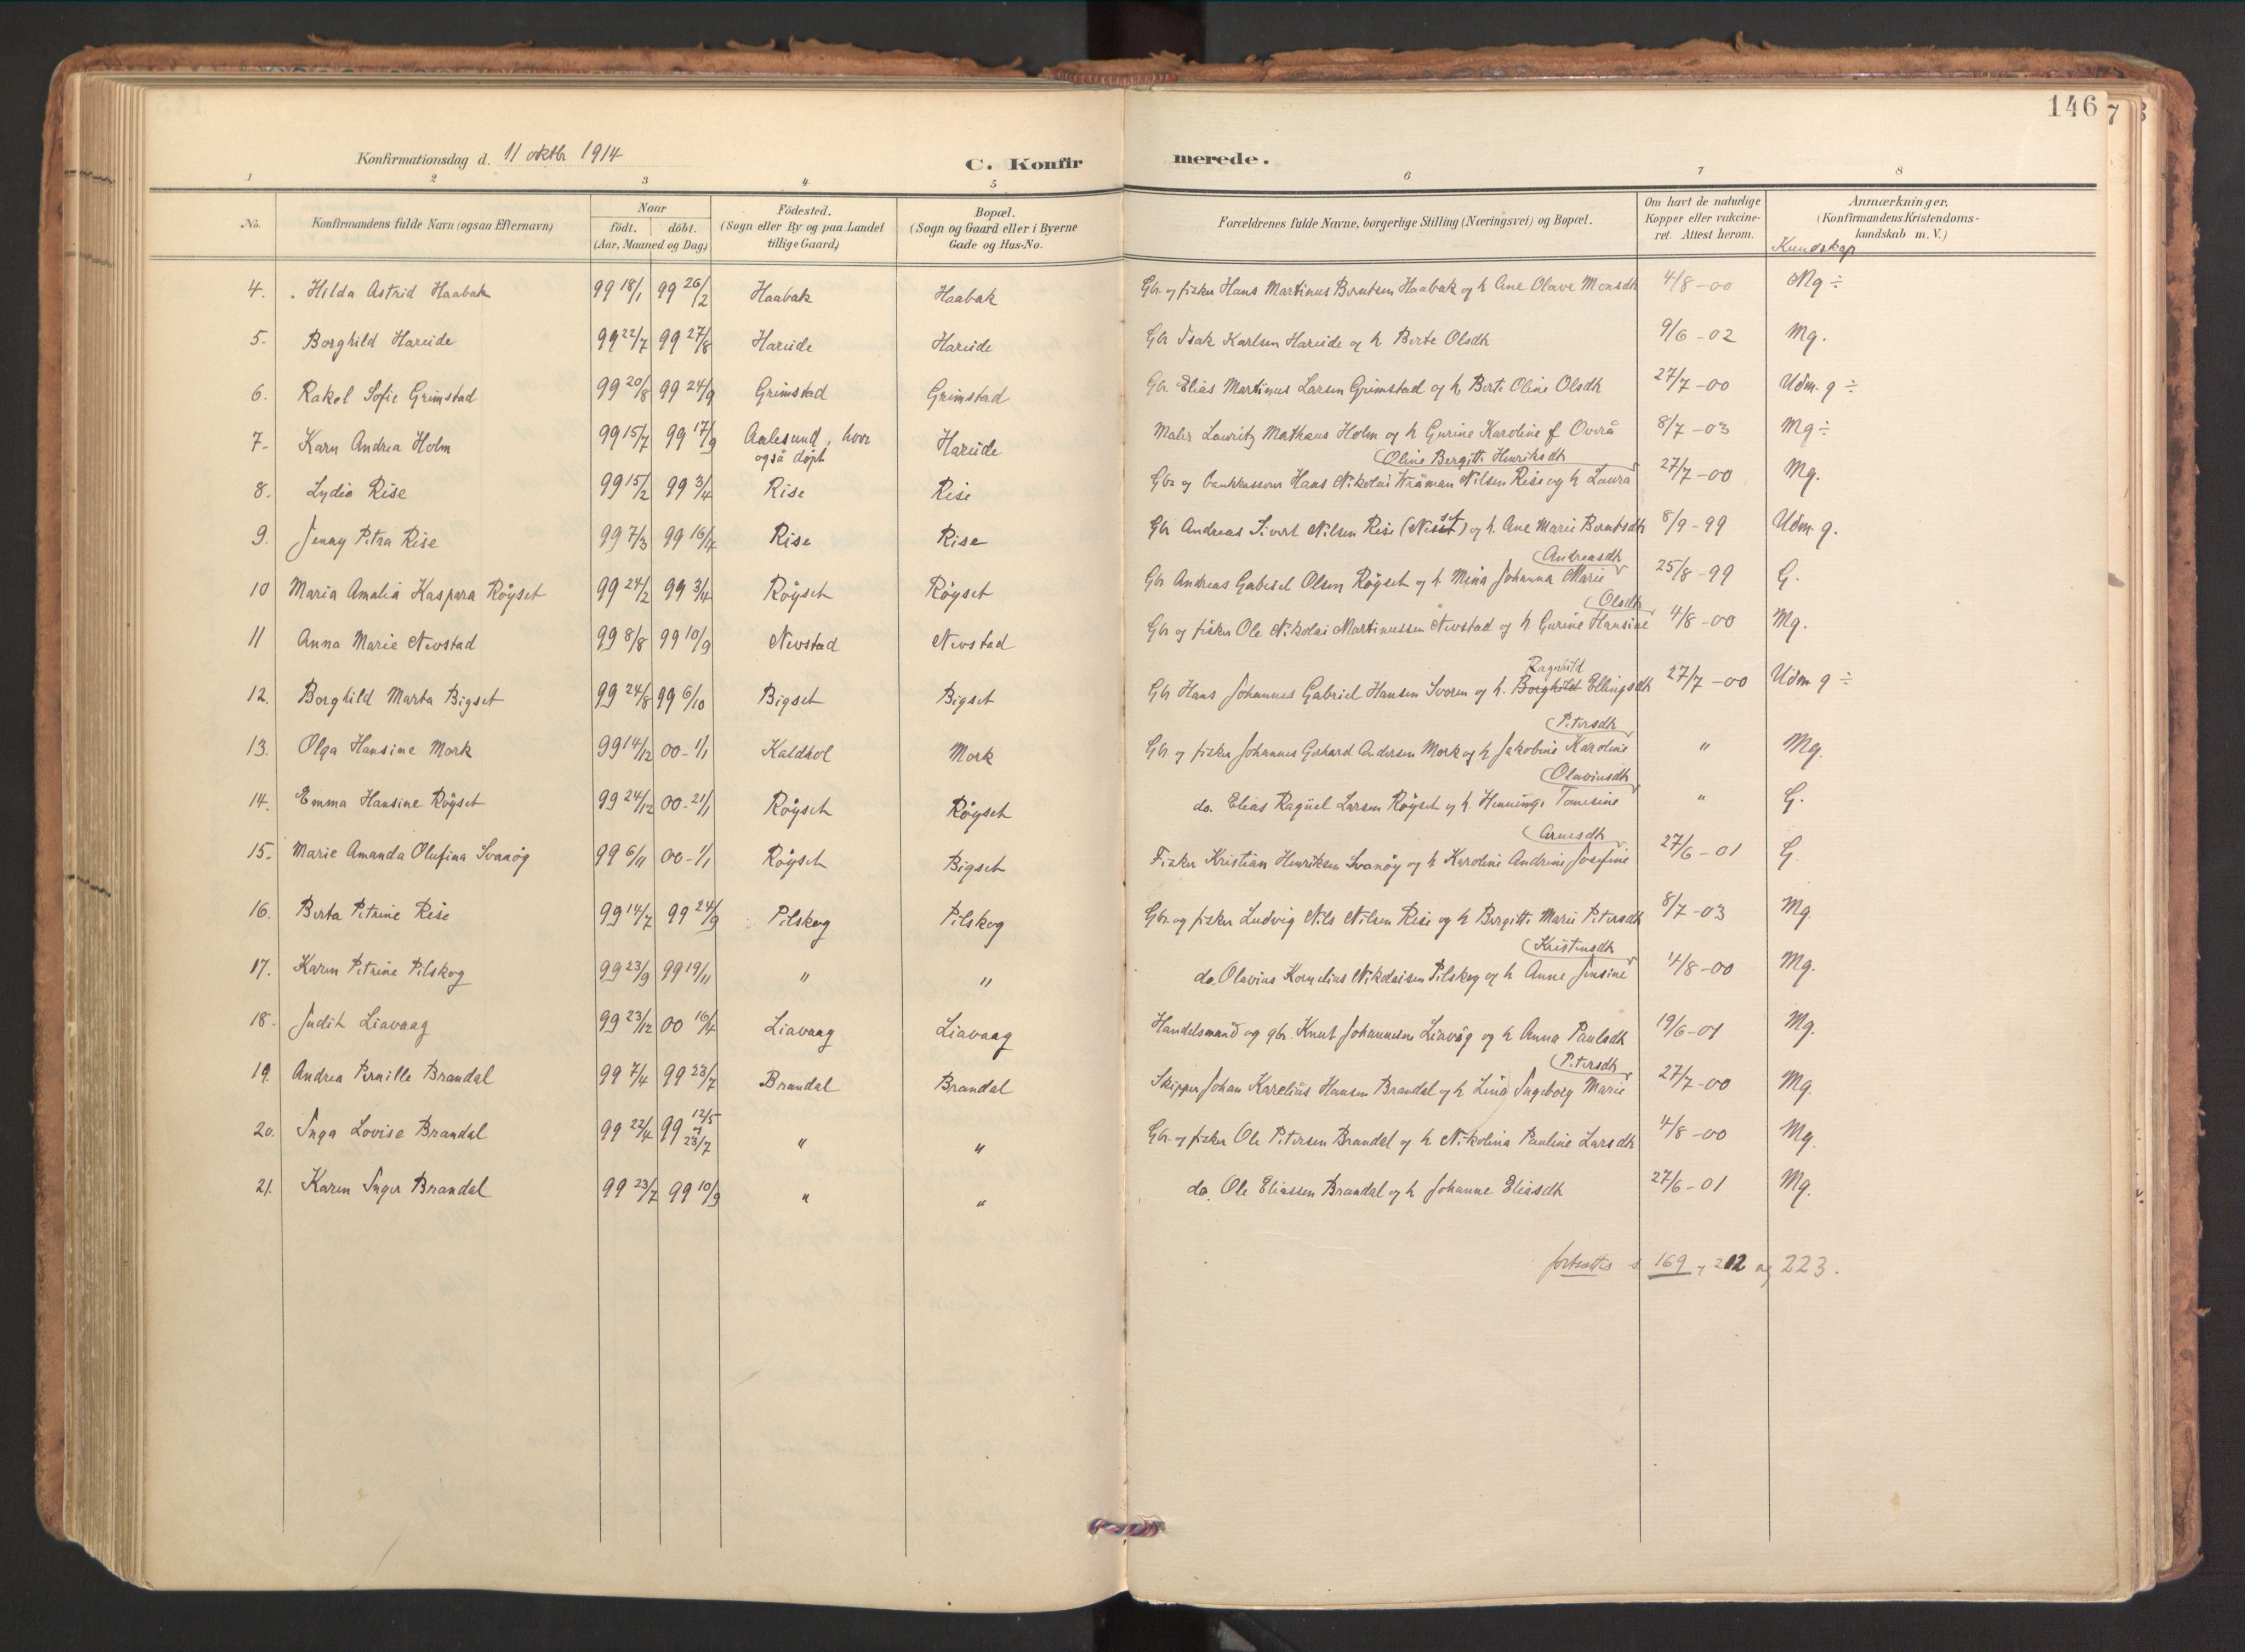 146
7
Konfirmationsdag d. 11 oktbr 1914
C. Konfirmerede.
1 2 3 4 5 6 7 8
No.
Konfirmandens fulde Navn (ogsaa Efternavn)
Naar
födt. döbt.
(Aar, Maaned og Dag)
Födested.
(Sogn eller By og paa Landet
tillige Gaard)
Bopæl.
(Sogn og Gaard eller i Byerne
Gade og Hus-No.
Forældrenes fulde Navne, borgerlige Stilling (Næringsvei) og Bopæl.
Om havt de naturlige
Kopper eller vakcine-
ret. Attest herom.
Anmærkninger.
(Konfirmandens Kristendoms-
kundskab m. V.)
Kundskap
4. Hilda Astrid Haabak 99 18/1 99 26/2 Haabak Haabak Gbr og fisker Hans Martinus Berntsen Haabak og h Ane Olave Monsdh 4/8-00 Mg ÷
5. Borghild Hareide 99 22/7 99 27/8 Hareide Hareide Gbr Isak Karlsen Hareide og h Berte Olsdh 9/6-02 Mg.
6. Rakel Sofie Grimstad 99 20/8 99 24/9 Grimstad Grimstad Gbr Elias Martinus Larsen Grimstad og h Berte Oline Olsdh 27/7-00 Udm. g ÷
7. Karn Andrea Holm 99 15/7 99 17/9 Aalesund, hvor Hareide Maler Lauritz Mathæus Holm og h Gurine Karoline f Overå 8/7-03 Mg ÷
også döpt
Oline Bergitte Henriksdh
8. Lydia Rise 99 15/2 99 3/4 Rise Rise Gbr og bankkasserer Hans Nikolai Nilsen Rise og h Laura 27/7-00 Mg.
9. Jenny Petra Rise 99 7/3 99 16/4 Rise Rise Gbr Andreas Sivert Nilsen Rise og h. Ane Marie Berntsdh 8/9-99 Udm. g.
Andreasdh
10 Maria Amalia Kaspara Röyset 99 24/2 99 3/4 Röyset Röyset Gbr Andreas Gabriel Olsen Röyset og h. Mina Johanna Marie 25/8-99 G.
Olsdh
11 Anna Marie Nevstad 99 8/8 99 10/9 Nevstad Nevstad Gbr og fisker Ole Nikolai Martinussen Nevstad og h Gurine Hansine 4/8-00 Mg.
Ragnhild
12. Borghild Marta Bigset 99 24/8 99 6/10 Bigset Bigset Gbr Hans Johannes Gabriel Hansen Svoren og h. Borghild Ellingsdh 27/7-00 Udm g ÷
Petersdh
13. Olga Hansine Mork 99 14/12 00-1/1 Kaldhol Mork Gbr og fisker Johannes Gerhard Andersen Mork og h Jakobine Karoline " Mg.
Olaviusdh
14. Emma Hansine Röyset 99 24/12 00-21/1 Röyset Röyset do. Elias Raguel Larsen Röyset og h. Tomesine " G.
Arnesdh
15. Marie Amanda Olufina Svanöy 99 6/11 00-1/1 Röyset Bigset Fisker Kristian Henriksen Svanöy og h Karoline Andrine Josefine 27/6-01 G.
16. Berta Petrine Rise 99 14/7 99 24/9 Pilskog Pilskog Gbr og fisker Ludvig Nils Nilsen Rise og h Bergitte Marie Petersdh 8/7-03 Mg.
Kristensdh
17. Karen Petrine Pilskog 99 23/9 99 19/11 " " do. Olavius Kornelius Nikolaisen Pilskog og h Anne Jensine 4/8-00 Mg.
18. Judith Liavaag 99 23/12 00 16/4 Liavaag Liavaag Handelsmand og gbr. Knut Johannesen Liavåg og h Anna Paulsdh 19/6-01 Mg.
Petersdh
19. Andrea Pernille Brandal 99 7/4 99 23/7 Brandal Brandal Skipper Johan Karelius Hansen Brandal og h Lina Ingeborg Marie 27/7-00 Mg.
20. Inga Lovise Brandal 99 22/4 99 12/5 og 23/7 " " Gbr. og fisker Ole Petersen Brandal og h Nikolina Pauline Larsdh 4/8-00 Mg.
21. Karen Inger Brandal 99 23/7 99 10/9 " " do. Ole Eliassen Brandal og h Johanne Eliasdh 27/6-01 Mg.
fortsættes s 169, 212 og 223.